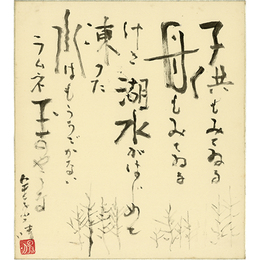 子供もみてゐる
母もみてゐる
けさ湖水がはじめて
凍った
氷はもううごかない
ラムネ玉のやうな